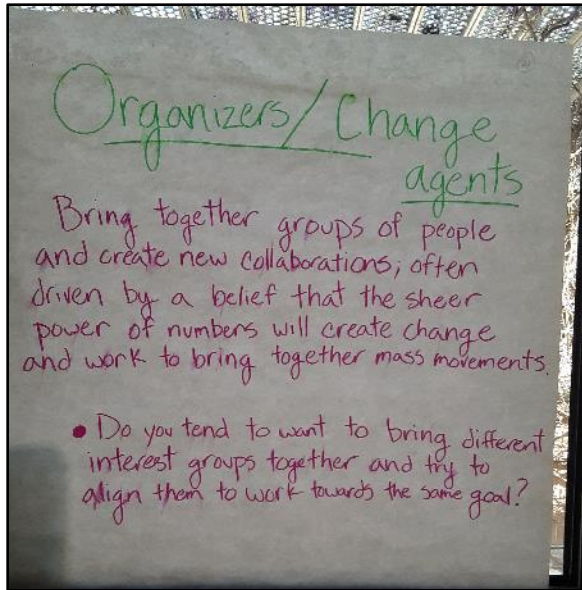 Organizers/Change
agents
Bring together groups of people
and create new collaborations; often
driven by a belief that the sheer
power of numbers will create change
and work to bring together mass movements.
• Do you tend to want to bring different
interest groups together and try to
align them to work towards the same goal?